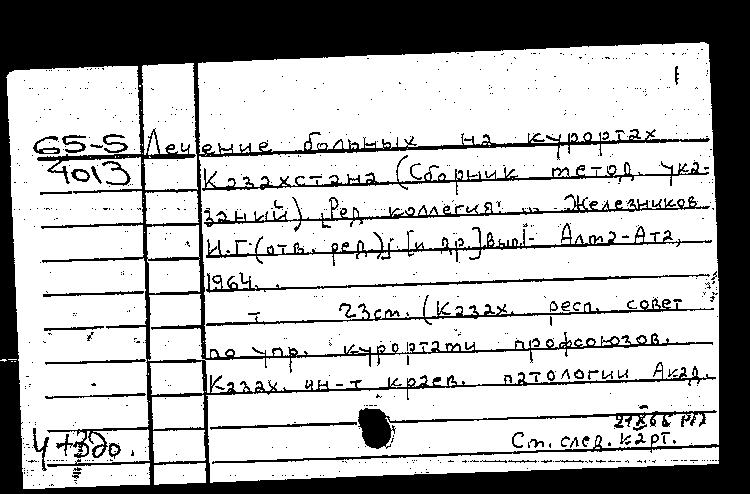 1
65-5
4013
Лечение больных на курортах
Казахстана (Сборник метод. ука-
заний) [Ред. коллегия: ... Железников
И.Г. (отв. ред.) [и др.] Вып. 1- Алма-Ата,
1964.
т 23см. (Казах. респ. совет
по упр. курортами профсоюзов.
Казах. ин-т краев. патологии Акад.
21 X 66
См. след. карт.